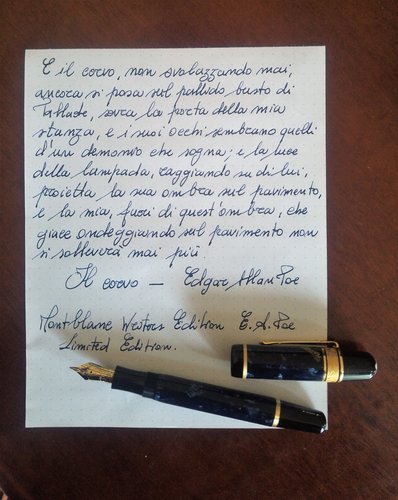 E il corvo, non svolazzando mai,
ancora si posa sul pallido busto di
Pallade, sovra la porta della mia
stanza, e i suoi occhi sembrano quelli
d'un demonio che sogna; e la luce
della lampada, raggiando su di lui,
proietta la sua ombra sul pavimento,
e la mia, fuori di quest'ombra, che
giace ondeggiando sul pavimento non
si solleverà mai più.
Il corvo — Edgar Allan Poe
Montblanc Writers Edition E. A. Poe
Limited Edition.